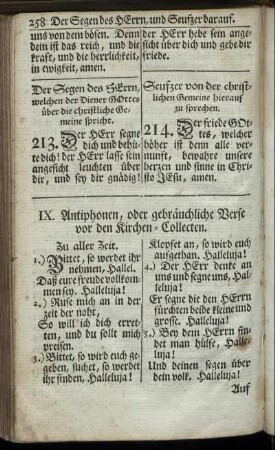 258 Der Segen des HErrn, und Seufzer darauf.
uns von dem bösen. Denn
dein ist das reich, und die
kraft, und die herrlichkeit,
in ewigkeit, amen.
der HErr hebe sein ange-
sicht über dich und gebe dir
friede.
Der Segen des HErrn,
welchen der Diener GOttes
über die christliche Ge-
meine spricht.
213. Der HErr segne
dich und behü-
te dich! der HErr lasse sein
angesicht leuchten über
dir, und sey dir gnädig!
Seufzer von der christ-
lichen Gemeine hierauf
zu sprechen.
214. Der friede GOt-
tes, welcher
höher ist denn alle ver-
nunft, bewahre unsere
herzen und sinne in Chri-
sto JEsu, amen.
IX. Antiphonen, oder gebräuchliche Verse
vor den Kirchen-Collecten.
Zu aller Zeit.
1.) Bittet, so werdet ihr
nehmen, Hallel.
Daß eure freude vollkom-
men sey. Halleluja!
2.) Rufe mich an in der
zeit der noht,
So will ich dich erret-
ten, und du sollt mich
preisen.
3.) Bittet, so wird euch ge-
geben, suchet, so werdet
ihr finden, Halleluja!
Klopfet an, so wird euch
aufgethan. Halleluja!
4.) Der HErr denke an
uns und segne uns, Hal-
leluja!
Er segne die den HErrn
fürchten beide kleine und
grosse. Halleluja!
5.) Bey dem HErrn fin-
det man hülfe, Halle-
luja!
Und deinen segen über
dein volk. Halleluja!
Auf